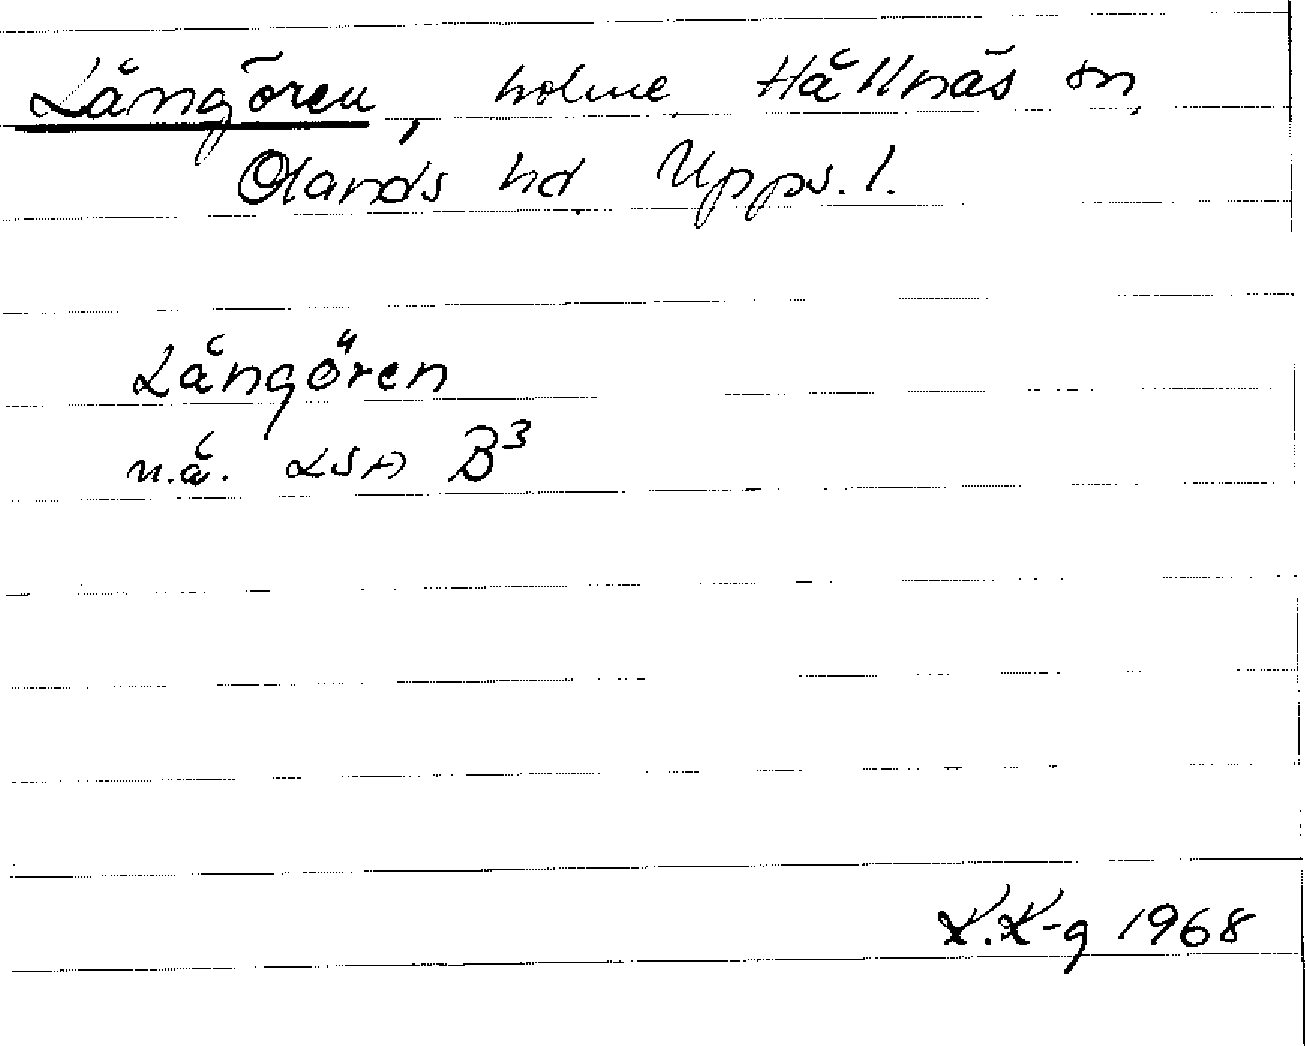 Långören, holme, Hållnäs sn,
Olands hd, Upps. l.
Långören
n.å. LSA B³
K.K-g 1968